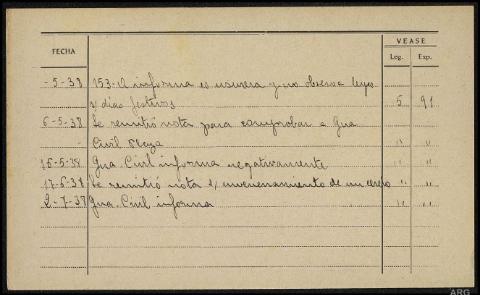 VEASE
FECHA
Leg. Exp.
-5-38 153-A informa es usurera y no observa leyes
y días festivos 5 91
6-5-38 Se remitió nota para comprobar a Gua
Civil " "
16-5-38 Gua. Civil informa negativamente " "
17-6-38 Se remitió nota s/ envenenamiento de un cerdo " "
2-7-38 Gua. Civil informa " "
ARG